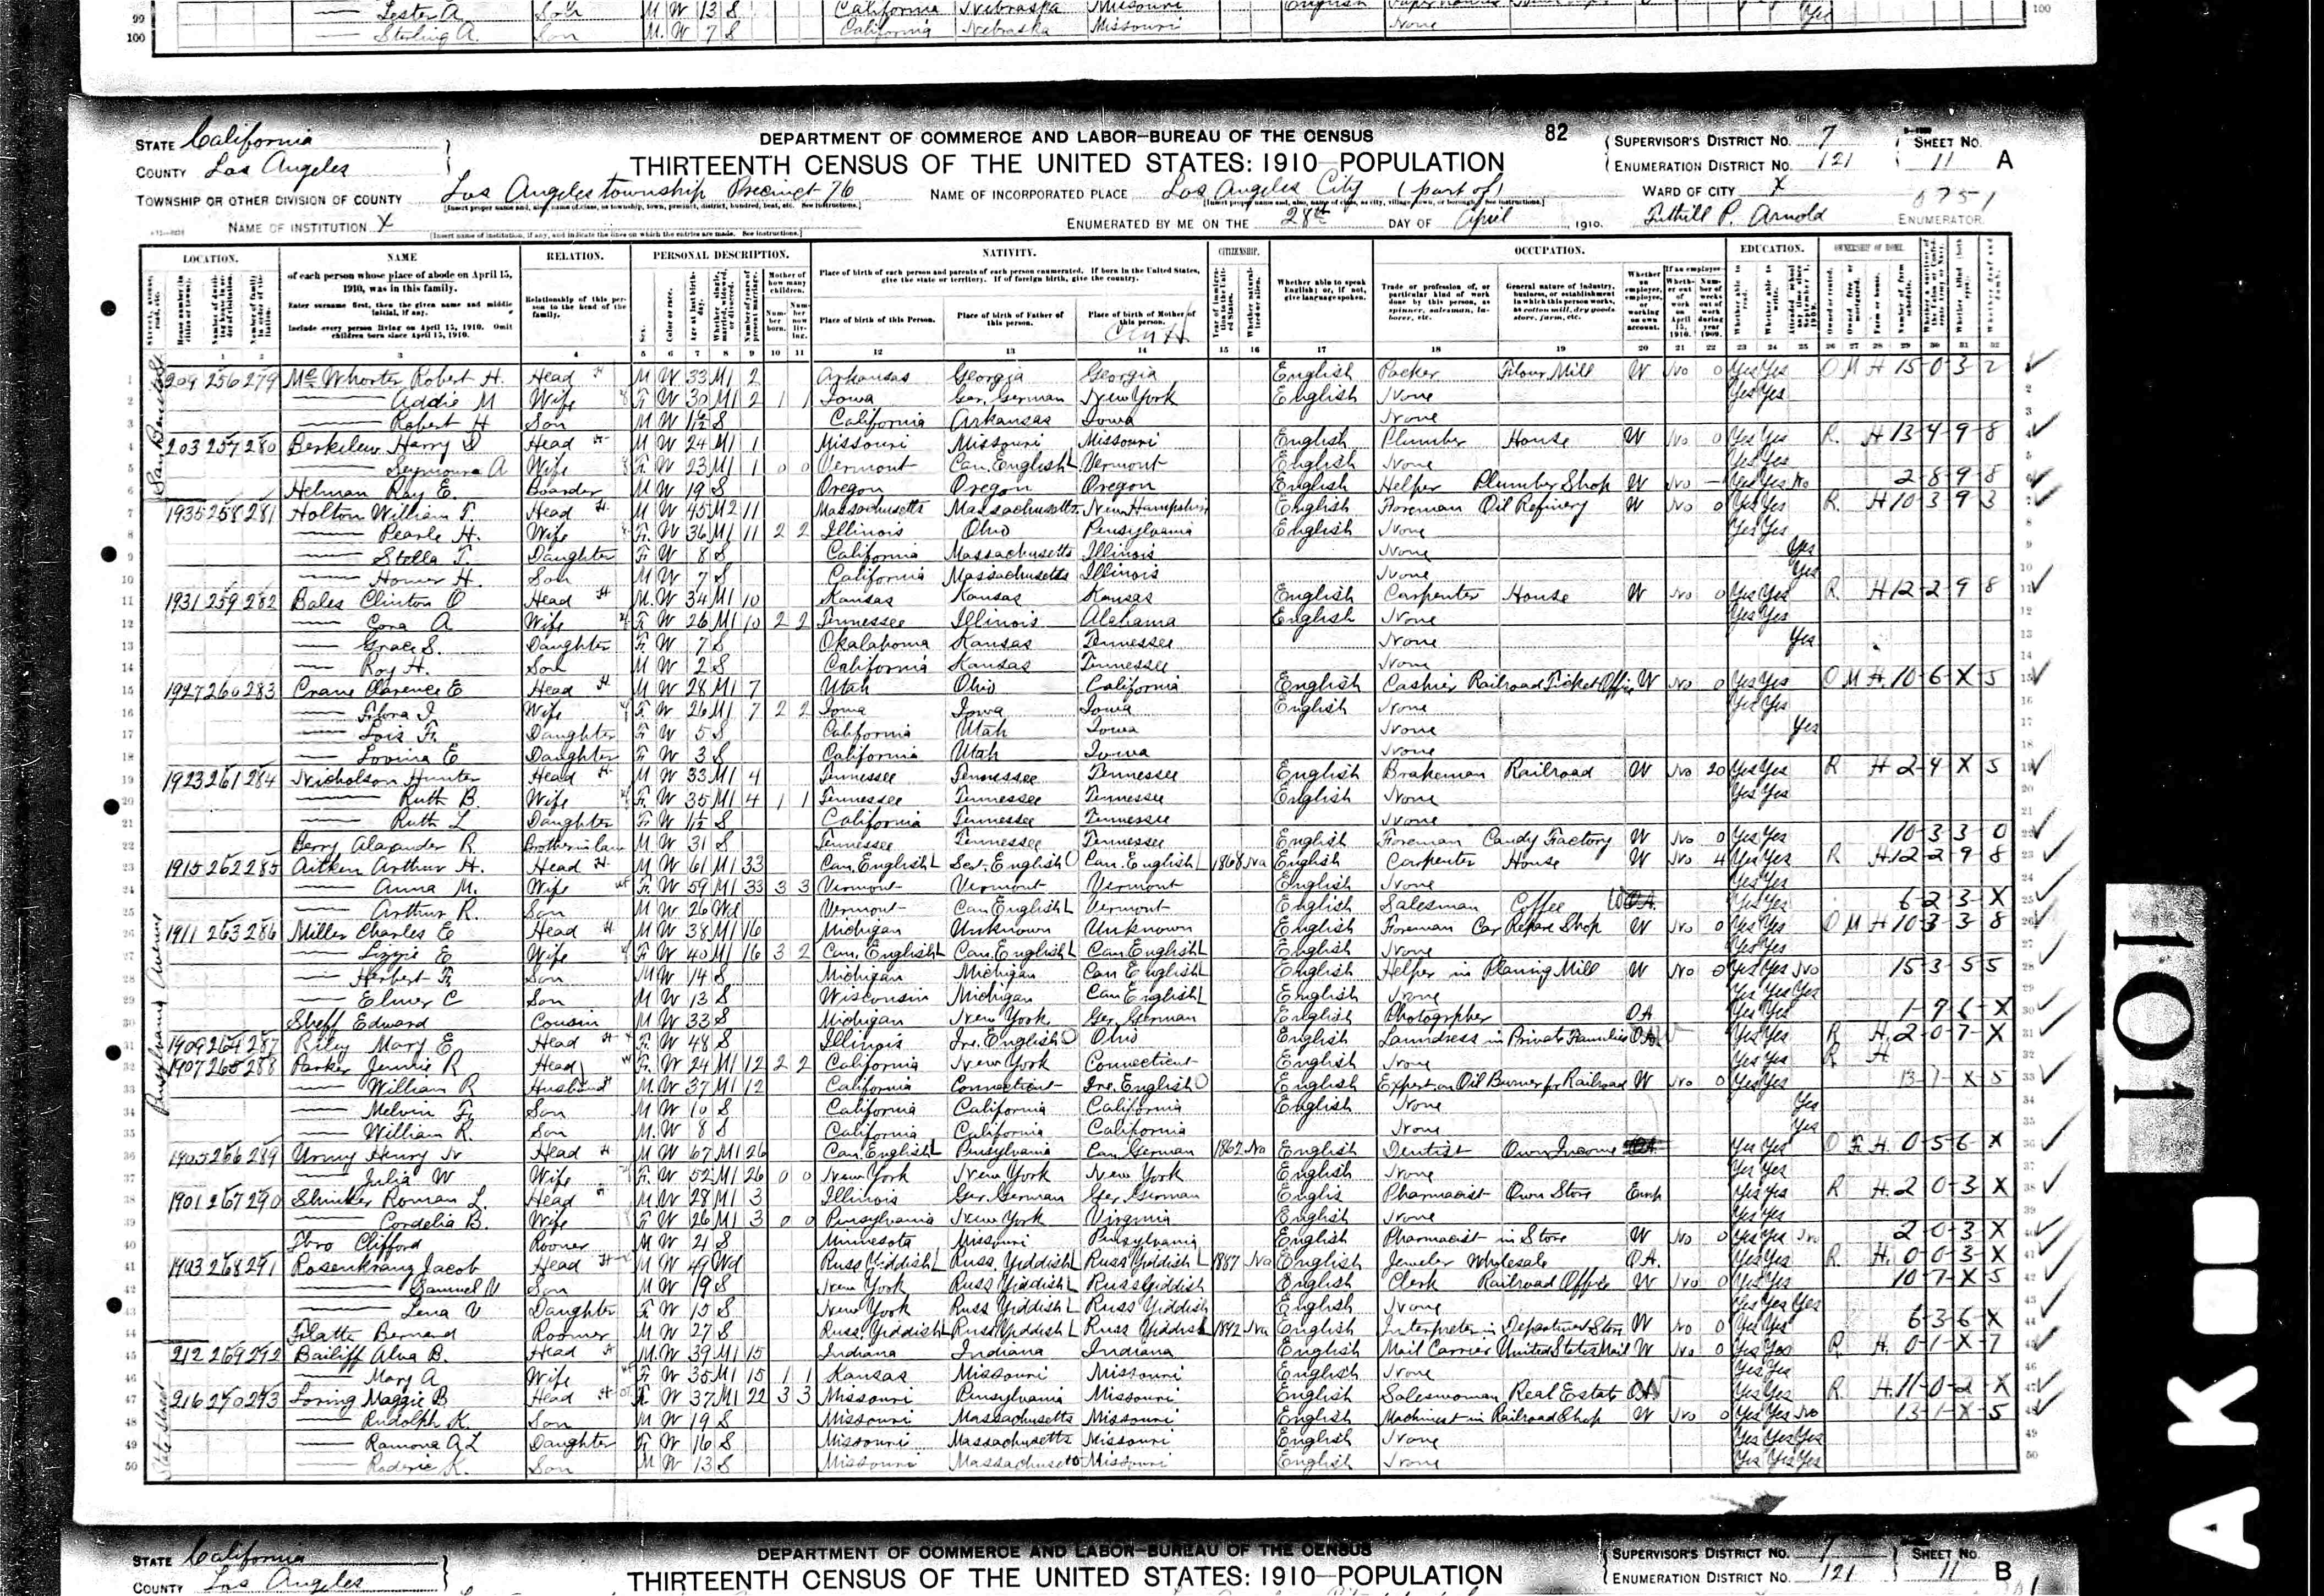 99 Lester A. Son M W 13 S California Nebraska Missouri English Yes
100 Sterling A. Son M. W 7 S California Nebraska Missouri None 100
STATE California
COUNTY Los Angeles
TOWNSHIP OR OTHER DIVISION OF COUNTY Los Angeles township Precinct 76
NAME OF INSTITUTION X
DEPARTMENT OF COMMERCE AND LABOR—BUREAU OF THE CENSUS
THIRTEENTH CENSUS OF THE UNITED STATES: 1910—POPULATION
82
NAME OF INCORPORATED PLACE Los Angeles City (part of)
ENUMERATED BY ME ON THE 28th DAY OF April, 1910.
SUPERVISOR'S DISTRICT NO. 7
ENUMERATION DISTRICT NO. 121
SHEET NO. 11 A
WARD OF CITY X
0751
Tuthill P. Arnold ENUMERATOR.
LOCATION. NAME RELATION. PERSONAL DESCRIPTION. NATIVITY. CITIZENSHIP. OCCUPATION. EDUCATION. OWNERSHIP OF HOME.
of each person whose place of abode on April 15, 1910, was in this family.
Enter surname first, then the given name and middle initial, if any.
Include every person living on April 15, 1910. Omit children born since April 15, 1910.
Relationship of this person to the head of the family.
Place of birth of each person and parents of each person enumerated. If born in the United States, give the state or territory. If of foreign birth, give the country.
Place of birth of this Person. Place of birth of Father of this person. Place of birth of Mother of this person.
Whether able to speak English; or, if not, give language spoken.
Trade or profession of, or particular kind of work done by this person, as spinner, salesman, laborer, etc.
General nature of industry, business, or establishment in which this person works, as cotton mill, dry goods store, farm, etc.
1 2 3 4 5 6 7 8 9 10 11 12 13 14 15 16 17 18 19 20 21 22 23 24 25 26 27 28 29 30 31 32
1 209 256 279 McWhorter Robert H. Head M W 33 M1 2 Arkansas Georgia Georgia English Packer Flour Mill W No 0 Yes Yes O M H 15-0-3-2
2 Addie M Wife F W 30 M1 2 1 1 Iowa Ger. German New York English None Yes Yes
3 Robert H Son M W 1½ S California Arkansas Iowa None
4 203 257 280 Harry D Head M W 24 M1 1 Missouri Missouri Missouri English Plumber House W No 0 Yes Yes R H 13-4-9-8
5 Seymoura A Wife F W 23 M1 1 0 0 Vermont Can. English Vermont English None Yes Yes
6 Helman Ray E. Boarder M W 19 S Oregon Oregon Oregon English Helper Plumber Shop W No Yes Yes No 2-8-9-8
7 1935 258 281 Holton William T. Head M W 45 M2 11 Massachusetts Massachusetts New Hampshire English Foreman Oil Refinery W No 0 Yes Yes R H 10 3 9 3
8 Pearle H. Wife F W 36 M1 11 2 2 Illinois Ohio Pensylvania English None Yes Yes
9 Stella T. Daughter F W 8 S California Massachusetts Illinois None Yes
10 Homer H. Son M W 7 S California Massachusetts Illinois None Yes
11 1931 259 282 Bales Clinton O Head M. W 34 M1 10 Kansas Kansas Kansas English Carpenter House W No 0 Yes Yes R H 12-2-9-8
12 Cora A Wife F W 26 M1 10 2 2 Tennessee Illinois Alabama English None Yes Yes
13 Grace S. Daughter F W 7 S Okalahoma Kansas Tennessee None Yes
14 Roy H. Son M W 2 S California Kansas Tennessee None
15 1927 260 283 Crane Clarence E Head M W 28 M1 7 Utah Ohio California English Cashier Railroad Ticket Office W No 0 Yes Yes O M H. 10-6-X-5
16 Flora I Wife F W 26 M1 7 2 2 Iowa Iowa Iowa English None Yes Yes
17 Lois F. Daughter F W 5 S California Utah Iowa None Yes
18 Lovina E Daughter F W 3 S California Utah Iowa None
19 1923 261 284 Nicholson Hunter Head M W 33 M1 4 Tennessee Tennessee Tennessee English Brakeman Railroad W No 20 Yes Yes R H 2-4-X-5
20 Ruth B. Wife F W 35 M1 4 1 1 Tennessee Tennessee Tennessee English None Yes Yes
21 Ruth L Daughter F W 1½ S California Tennessee Tennessee None
22 Berry Alexander R. Brother in law M W 31 S Tennessee Tennessee Tennessee English Foreman Candy Factory W No 0 Yes Yes 10-3-3-0
23 1915 262 285 Aitken Arthur H. Head M W 61 M1 33 Can. English Sct. English Can. English 1868 Na English Carpenter House W No 4 Yes Yes R H. 12-2-9-8
24 Anna M. Wife F. W 59 M1 33 3 3 Vermont Vermont Vermont English None Yes Yes
25 Arthur R. Son M W 26 Wd Vermont Can English Vermont English Salesman Coffee W Yes Yes 6-2-3-X
26 1911 263 286 Miller Charles E Head M W 38 M1 16 Michigan Unknown Unknown English Foreman Car Repare Shop W No 0 Yes Yes O M H 10-3-3-8
27 Lizzie E Wife F W 40 M1 16 3 2 Can. English Can. English Can English English None Yes Yes
28 Herbert F. Son M W 14 S Michigan Michigan Can English English Helper in Planing Mill W No 0 Yes Yes No 15-3-5-5
29 Elmer C Son M W 13 S Wisconsin Michigan Can English English None Yes Yes Yes
30 Sheff Edward Cousin M W 33 S Michigan New York Ger. German English Photographer OA Yes Yes 1-7-6-X
31 1909 264 287 Riley Mary E Head F W 48 S Illinois Ire. English Ohio English Laundress in Private Families OA Yes Yes R H. 2-0-7-X
32 1907 265 288 Parker Jennie R Head F. W 24 M1 12 2 2 California New York Connecticut English None Yes Yes R H
33 William R Husband M. W 37 M1 12 California Connecticut Ire. English English Expert on Oil Burner for Railroad W No 0 Yes Yes 13-1-X-5
34 Melvin F. Son M W 10 S California California California English None Yes
35 William R. Son M. W 8 S California California California None Yes
36 1905 266 289 Urmy Henry N Head M W 67 M1 26 Can. English Pensylvania Can German 1862 Na English Dentist Own Income Yes Yes O F H. 0-5-6-X
37 Julia W Wife F. W 52 M1 26 0 0 New York New York New York English None Yes Yes
38 1901 267 290 Roman L. Head M W 28 M1 3 Illinois Ger. German Ger. German Englis Pharmacist Own Store Emp Yes Yes R H. 2 0-3-X
39 Cordelia B. Wife F W 26 M1 3 0 0 Pensylvania New York Virginia English None Yes Yes
40 Clifford Roomer M W 21 S Minnesota Missouri Pensylvania English Pharmacist in Store W No 0 Yes Yes No 2-0-3-X
41 1903 268 291 Rosenkranz Jacob Head M W 49 Wd Russ Yiddish Russ. Yiddish Russ Yiddish 1887 Na English Jeweler Wholesale O.A. Yes Yes R. H. 0-0-3-X
42 Samuel V Son M W 19 S New York Russ Yiddish Russ Yiddish English Clerk Railroad Office W No 0 Yes Yes 10-7-X-5
43 Lena V Daughter F. W 15 S New York Russ Yiddish Russ Yiddish English None Yes Yes Yes
44 Bernard Roomer M W 27 S Russ. Yiddish Russ Yiddish Russ Yiddish 1892 Na English Interpreter in Department Store W No 0 Yes Yes 6-3-6-X
45 212 269 292 Bailiff Alva B. Head M. W 39 M1 15 Indiana Indiana Indiana English Mail Carrier United States Mail W No 0 Yes Yes R H. 0-1-X-7
46 Mary A Wife F W 35 M1 15 1 1 Kansas Missouri Missouri English None Yes Yes
47 216 270 293 Loring Maggie B. Head F W 37 M1 22 3 3 Missouri Pensylvania Missouri English Saleswoman Real Estate Yes Yes R H. 11-0-2-X
48 Rudolph K. Son M W 19 S Missouri Massachusetts Missouri English Machinest in Railroad Shop W No 0 Yes Yes No 13-1-X-5
49 Ramona A L Daughter F W 16 S Missouri Massachusetts Missouri English None Yes Yes Yes
50 Roderic K. Son M W 13 S Missouri Massachusetts Missouri English None Yes Yes Yes
Pensylvania Avenue
State Street
101
AK
STATE California
COUNTY Los Angeles
DEPARTMENT OF COMMERCE AND LABOR—BUREAU OF THE CENSUS
THIRTEENTH CENSUS OF THE UNITED STATES: 1910—POPULATION
SUPERVISOR'S DISTRICT NO. 7
ENUMERATION DISTRICT NO. 121
SHEET NO. 11 B